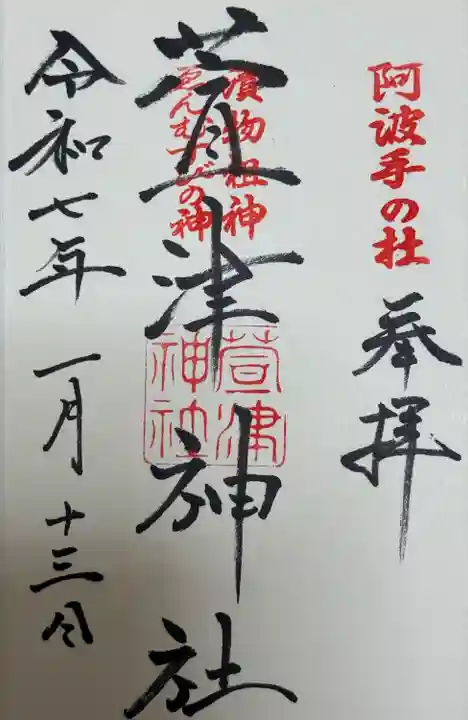 阿波手の杜
奉拝
漬物祖神
ゑんむすびの神
萱津神社
萱津
神社
令和七年一月十三日